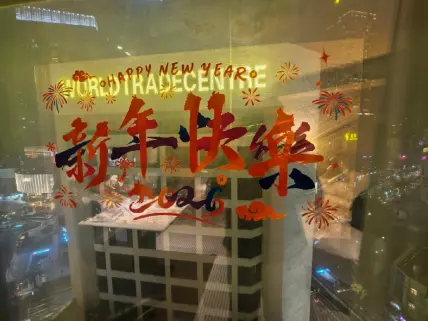 HAPPY NEW YEAR
WORLDTRADECENTRE
新年快樂
2026